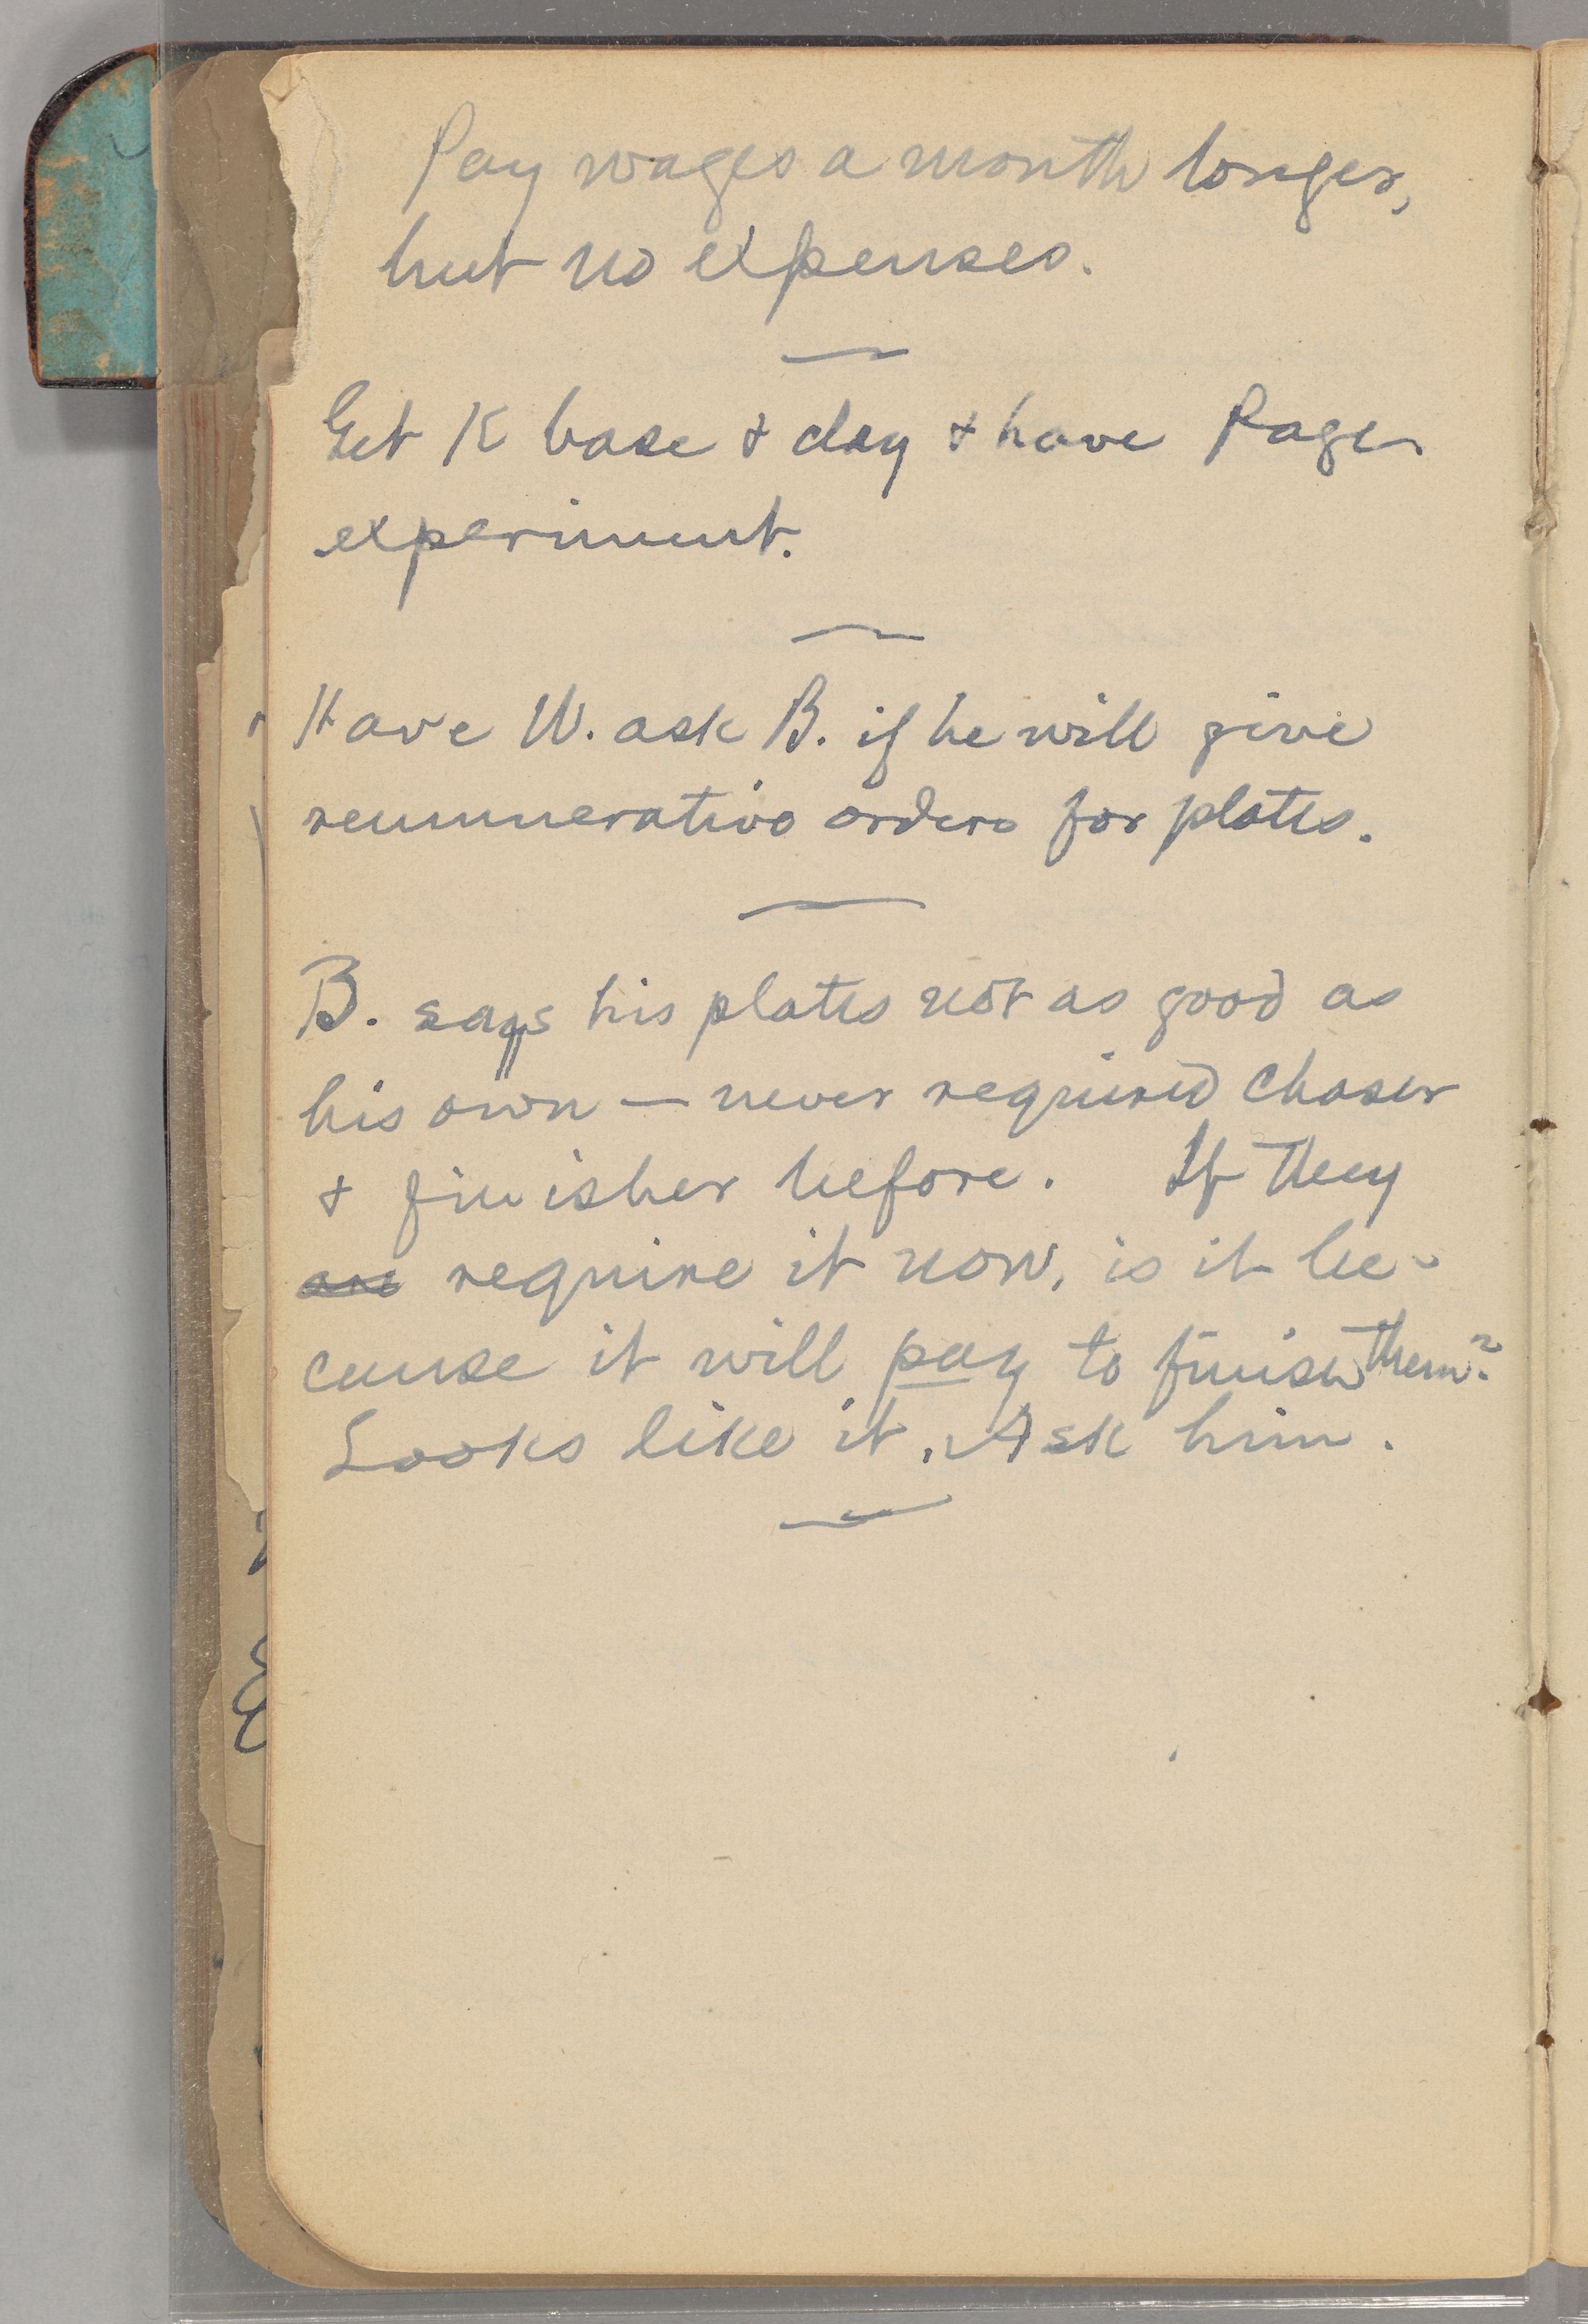 Pay wages a month longer,
but no expenses.
Get K base & clay & have Page
experiment.
Have W. ask B. if he will give
remunerative orders for plates.
B. says his plates not as good as
his own — never required chaser
& finisher before. If they
are require it now, is it be-
cause it will pay to finish them?
Looks like it. Ask him.